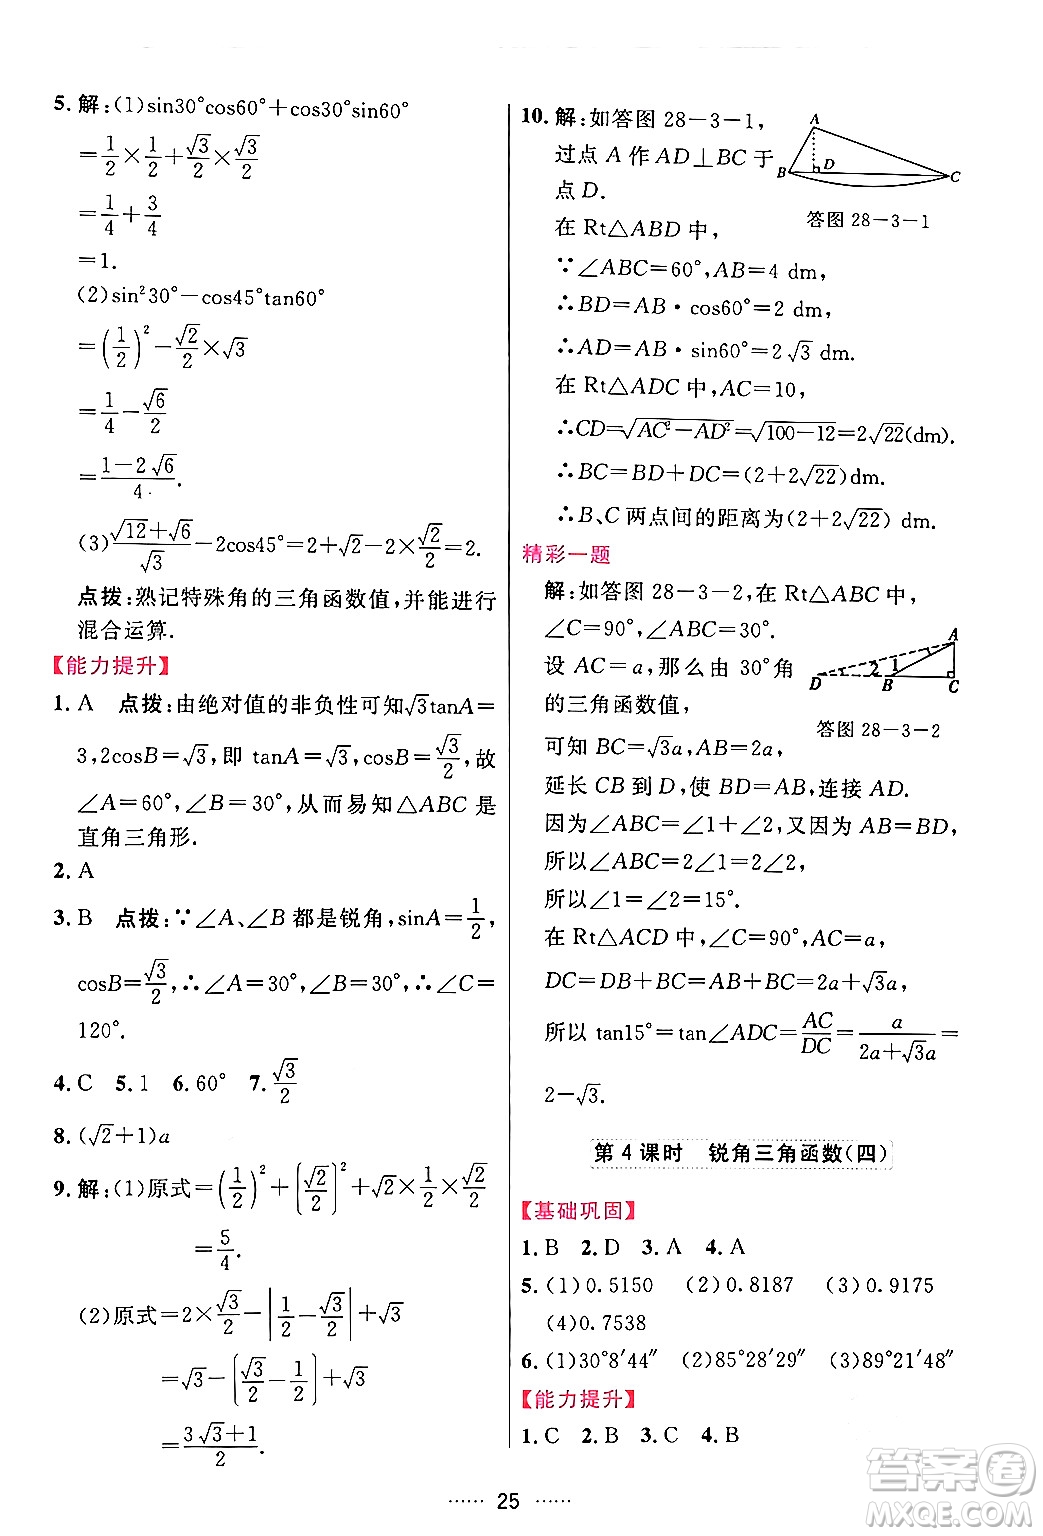 5. 解:(1)sin30°cos60°+cos30°sin60°
=1/2×1/2+√3/2×√3/2
=1/4+3/4
=1.
(2)sin²30°-cos45°tan60°
=(1/2)²-√2/2×√3
=1/4-√6/2
=(1-2√6)/4.
(3)(√12+√6)/√3-2cos45°=2+√2-2×√2/2=2.
点拨:熟记特殊角的三角函数值,并能进行
混合运算.
【能力提升】
1. A 点拨:由绝对值的非负性可知√3tanA=
3,2cosB=√3,即 tanA=√3,cosB=√3/2,故
∠A=60°,∠B=30°,从而易知△ABC 是
直角三角形.
2. A
3. B 点拨:∵∠A、∠B 都是锐角,sinA=1/2,
cosB=√3/2,∴∠A=30°,∠B=30°,∴∠C=
120°.
4. C 5. 1 6. 60° 7. √3/2
8. (√2+1)a
9. 解:(1)原式=(1/2)²+(√2/2)²+√2×1/2×√2/2
=5/4.
(2)原式=2×√3/2-|1/2-√3/2|+√3
=√3-(√3/2-1/2)+√3
=(3√3+1)/2.
10. 解:如答图 28-3-1,
过点 A 作 AD⊥BC 于
点 D.
A
B
D
C
答图 28-3-1
在 Rt△ABD 中,
∵∠ABC=60°,AB=4 dm,
∴BD=AB·cos60°=2 dm,
∴AD=AB·sin60°=2√3 dm.
在 Rt△ADC 中,AC=10,
∴CD=√(AC²-AD²)=√(100-12)=2√22(dm).
∴BC=BD+DC=(2+2√22) dm.
∴B、C 两点间的距离为(2+2√22) dm.
精彩一题
解:如答图 28-3-2,在 Rt△ABC 中,
∠C=90°,∠ABC=30°.
设 AC=a,那么由 30°角
的三角函数值,
A
2
1
D
B
C
答图 28-3-2
可知 BC=√3a,AB=2a,
延长 CB 到 D,使 BD=AB,连接 AD.
因为∠ABC=∠1+∠2,又因为 AB=BD,
所以∠ABC=2∠1=2∠2,
所以∠1=∠2=15°.
在 Rt△ACD 中,∠C=90°,AC=a,
DC=DB+BC=AB+BC=2a+√3a,
所以 tan15°=tan∠ADC=AC/DC=a/(2a+√3a)=
2-√3.
第 4 课时 锐角三角函数(四)
【基础巩固】
1. B 2. D 3. A 4. A
5. (1)0.5150 (2)0.8187 (3)0.9175
(4)0.7538
6. (1)30°8′44″ (2)85°28′29″ (3)89°21′48″
【能力提升】
1. C 2. B 3. C 4. B
······ 25 ······
答案卷
MXQE.COM